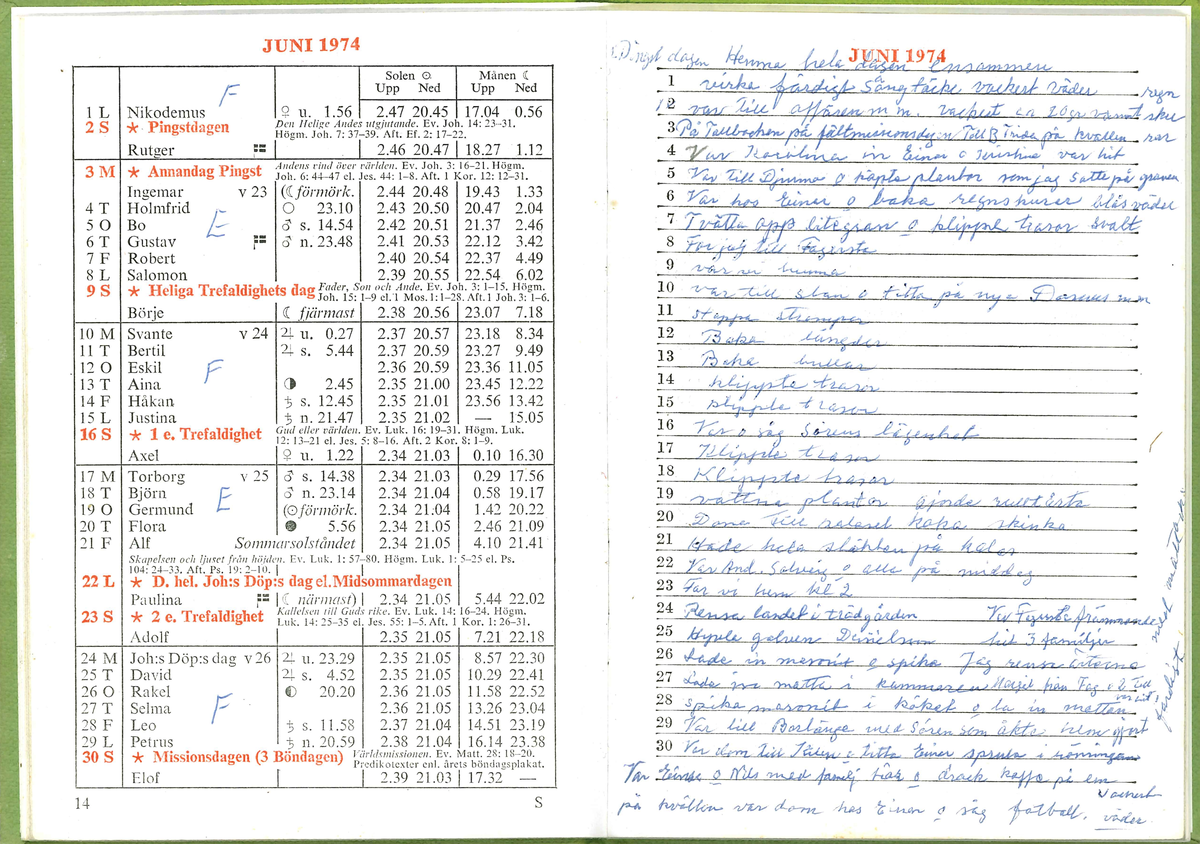 JUNI 1974
Solen ☉ Månen ☾
Upp Ned Upp Ned
1 L Nikodemus F ♀ u. 1.56 2.47 20.45 17.04 0.56
2 S ★ Pingstdagen Den Helige Andes utgjutande. Ev. Joh. 14: 23–31.
Högm. Joh. 7: 37–39. Aft. Ef. 2: 17–22.
Rutger 2.46 20.47 18.27 1.12
3 M ★ Annandag Pingst Andens vind över världen. Ev. Joh. 3: 16–21. Högm.
Joh. 6: 44–47 el. Jes. 44: 1–8. Aft. 1 Kor. 12: 12–31.
Ingemar v 23 (☾ förmörk. 2.44 20.48 19.43 1.33
4 T Holmfrid ○ 23.10 2.43 20.50 20.47 2.04
5 O Bo E ♂ s. 14.54 2.42 20.51 21.37 2.46
6 T Gustav ♂ n. 23.48 2.41 20.53 22.12 3.42
7 F Robert 2.40 20.54 22.37 4.49
8 L Salomon 2.39 20.55 22.54 6.02
9 S ★ Heliga Trefaldighets dag Fader, Son och Ande. Ev. Joh. 3: 1–15. Högm.
Joh. 15: 1–9 el. 1 Mos. 1: 1–28. Aft. 1 Joh. 3: 1–6.
Börje ☾ fjärmast 2.38 20.56 23.07 7.18
10 M Svante v 24 ♃ u. 0.27 2.37 20.57 23.18 8.34
11 T Bertil ♃ s. 5.44 2.37 20.59 23.27 9.49
12 O Eskil F 2.36 20.59 23.36 11.05
13 T Aina ◑ 2.45 2.35 21.00 23.45 12.22
14 F Håkan ♄ s. 12.45 2.35 21.01 23.56 13.42
15 L Justina ♄ n. 21.47 2.35 21.02 — 15.05
16 S ★ 1 e. Trefaldighet Gud eller världen. Ev. Luk. 16: 19–31. Högm. Luk.
12: 13–21 el. Jes. 5: 8–16. Aft. 2 Kor. 8: 1–9.
Axel ♀ u. 1.22 2.34 21.03 0.10 16.30
17 M Torborg v 25 ♂ s. 14.38 2.34 21.03 0.29 17.56
18 T Björn ♂ n. 23.14 2.34 21.04 0.58 19.17
19 O Germund E (☉ förmörk. 2.34 21:04 1.42 20.22
20 T Flora ● 5.56 2.34 21.05 2.46 21.09
21 F Alf Sommarsolståndet 2.34 21.05 4.10 21.41
Skapelsen och ljuset från höjden. Ev. Luk. 1: 57–80. Högm. Luk. 1: 5–25 el. Ps.
104: 24–33. Aft. Ps. 19: 2–10.
22 L ★ D. hel. Joh:s Döp:s dag el. Midsommardagen
Paulina (☾ närmast) 2.34 21.05 5.44 22.02
23 S ★ 2 e. Trefaldighet Kallelsen till Guds rike. Ev. Luk. 14: 16–24. Högm.
Luk. 14: 25–35 el. Jes. 55: 1–5. Aft. 1 Kor. 1: 26–31.
Adolf 2.35 21.05 7.21 22.18
24 M Joh:s Döp:s dag v 26 ♃ u. 23.29 2.35 21.05 8.57 22.30
25 T David ♃ s. 4.52 2.35 21.05 10.29 22.41
26 O Rakel ◐ 20.20 2.36 21.05 11.58 22.52
27 T Selma F 2.36 21.05 13.26 23.04
28 F Leo ♄ s. 11.58 2.37 21.04 14.51 23.19
29 L Petrus ♄ n. 20.59 2.38 21.04 16.14 23.38
30 S ★ Missionsdagen (3 Böndagen) Världsmissionen. Ev. Matt. 28: 18–20.
Predikotexter enl. årets böndagsplakat.
Elof 2.39 21.03 17.32 —
14 S
JUNI 1974
Pingst dagen Hemma hela dagen Ensammen
1 virka färdigt Sängtäcke vackert väder regn
2 var till affären m m. vackert ca 20 gr varmt sku
3 På Tallbacken på fältmissionsdagen Till Frida på kvällen rar
4 Var Karolina in Einar o Kristina var hit
5 Var till Djurmo o köpte plantor som jag satte på graven
6 Var hos Einar o baka regnskurar blås väder
7 Tvätta opp lite gran o klippte trasor Svalt
8 For jag till Fagersta
9 var vi hemma
10 var till stan o titta på nya Domus m m
11 stoppa strumpor
12 Baka längder
13 Baka bullar
14 klippte trasor
15 klippte trasor
16 Var o såg Sörens lägenhet
17 Klippte trasor
18 Klippte trasor
19 vattna plantor gjorde
20 Dona till kalaset koka skinka
21 Hade hela släkten på kalas
22 Var And. Solveig o alla på middag
23 Far vi hem kl 2
24 Rensa landet i trädgården Var Fagersta främmande
25 hit 3 familjer
26 Lade in masonit o spika Jag rensa ärterna
27 Lade in matta i kammaren Margit från Fag
var hit
28 Spika masonit i köket o la in mattan
29 Var till Borlänge med Sören som åkte hem
30 Var dom till o titta Einar
Var Einar o Nils med familj o drack kaffe på em
på kvällen var dom hos Einar o såg fotboll. Vackert
väder
färdigt med mattorna